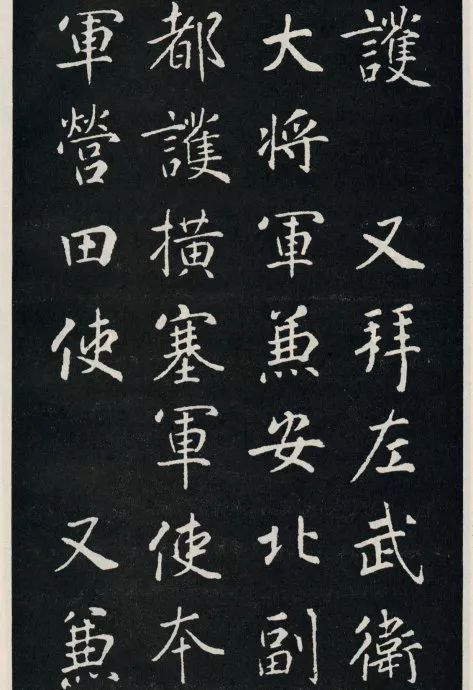 護 又拜左武衛
大将軍兼安北副
都護横塞軍使本
軍營田使 又兼